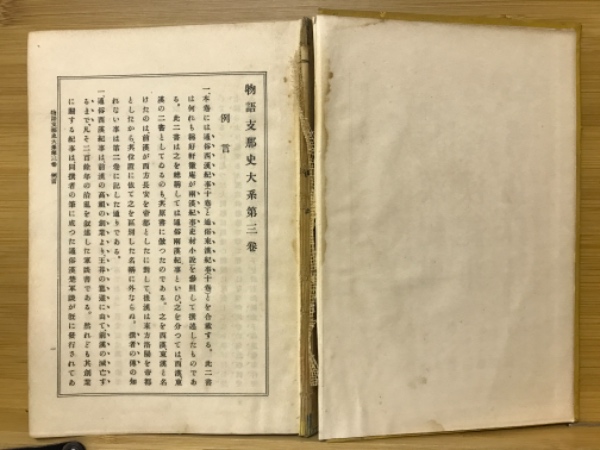 物語支那史大系第三卷
例言
一、本卷には通俗西漢紀事十卷と通俗東漢紀事十卷とを合載する。此二書
は何れも稱好軒徽庵が兩漢紀事史村小説を參照して撰述したものであ
る。此二書は之を總稱しては通俗兩漢紀事といひ、之を分つては西漢東
漢の二書としてゐるのも、其原書に倣つたのである。之を西漢東漢と名
けたのは、前漢が西方長安を帝都としたに對して、後漢は東方洛陽を帝都
としたから、其位置に依て之を區別した名稱に外ならぬ。撰者の傳の知
れない事は第二卷に記した通りである。
一、通俗西漢紀事は、前漢の高祖の創業より、王莽の簒逆に由て、前漢の滅亡す
るまで、凡そ二百餘年の治亂を敍述した軍談書である。然れども其創業
に關する紀事は、同撰者の筆に成つた通俗漢楚軍談が既に發行されてあ
物語支那史大系第三卷 例言
一